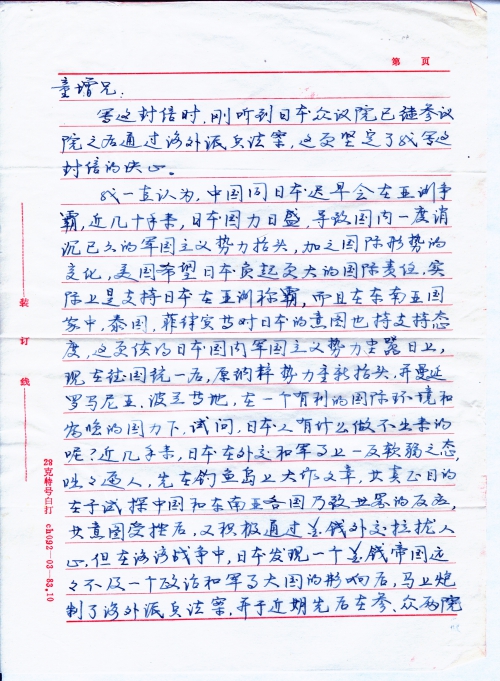 第　页
童增兄：
写这封信时，刚听到日本众议院已继参议
院之后通过海外派兵法案，这更坚定了我写这
封信的决心。
我一直认为，中国同日本迟早会在亚洲争
霸，近几十年来，日本国力日盛，导致国内一度消
沉已久的军国主义势力抬头，加之国际形势的
变化，美国希望日本负起更大的国际责任，实
际上是支持日本在亚洲称霸，而且在东南亚国
家中，泰国，菲律宾等对日本的意图也持支持态
度，这更使的日本国内军国主义势力尘嚣日上，
现在德国统一后，原纳粹势力重新抬头，并蔓延
罗马尼亚、波兰等地，在一个有利的国际环境和
富强的国力下，试问，日本人有什么做不出来的
呢？近几年来，日本在外交和军事上一反软弱之态，
咄々逼人，先在钓鱼岛上大作文章，其真正目的
在于试探中国和东南亚各国乃致世界的反应，
其意图受挫后，又积极通过金钱外交拉拢人
心，但在海湾战争中，日本发现一个金钱帝国远
々不及一个政治和军事大国的影响后，马上炮
制了海外派兵法案，并于近期先后在参、众两院
装
订
线
28克特号白打 ch092-03-83.10